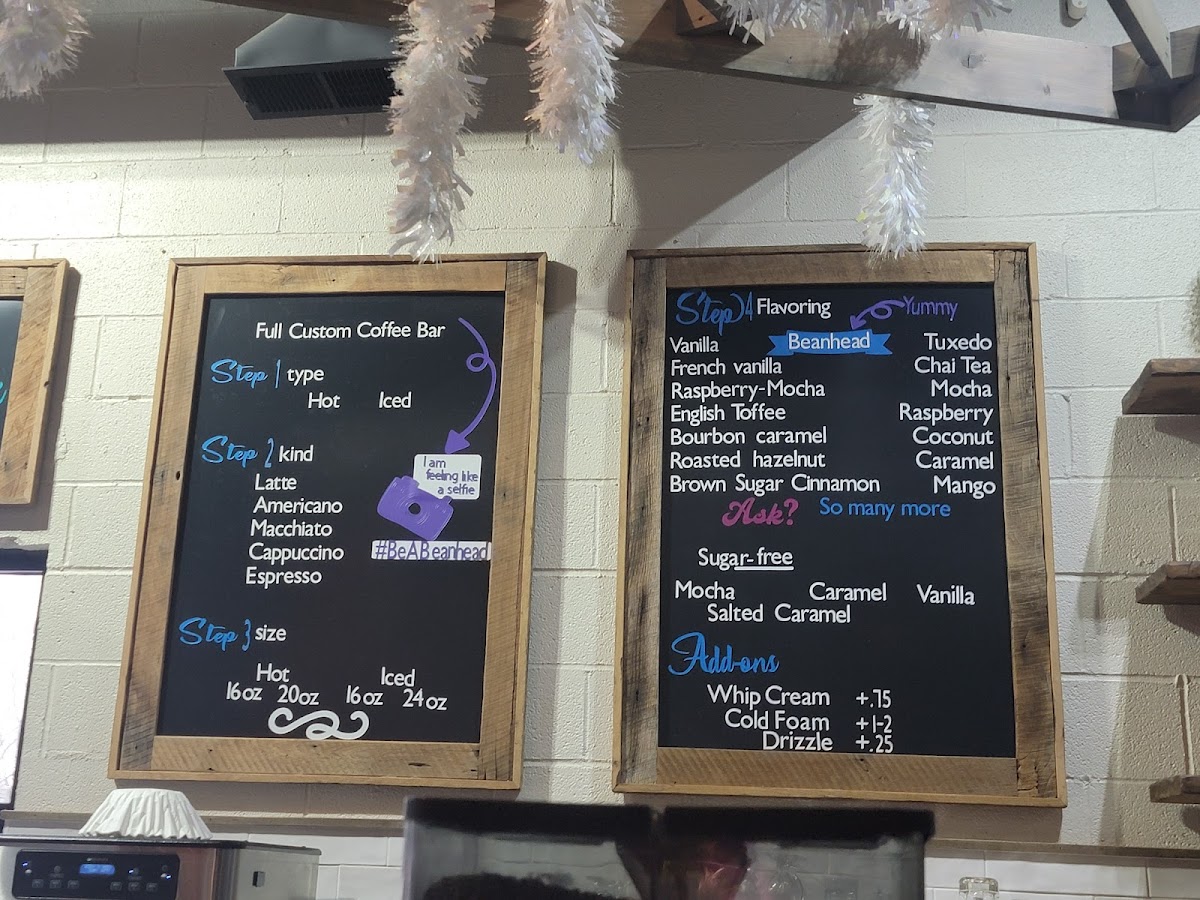 Full Custom Coffee Bar
Step 1 type
Hot Iced
Step 2 kind
Latte
Americano
Macchiato
Cappuccino
Espresso
I am
feeling like
a selfie
#BeABeanhead
Step 3 size
Hot Iced
16 oz 20 oz 16 oz 24 oz
Step 4 Flavoring Yummy
Beanhead
Vanilla Tuxedo
French vanilla Chai Tea
Raspberry-Mocha Mocha
English Toffee Raspberry
Bourbon caramel Coconut
Roasted hazelnut Caramel
Brown Sugar Cinnamon Mango
Ask? So many more
Sugar-free
Mocha Caramel Vanilla
Salted Caramel
Add-ons
Whip Cream +.75
Cold Foam +1-2
Drizzle +.25